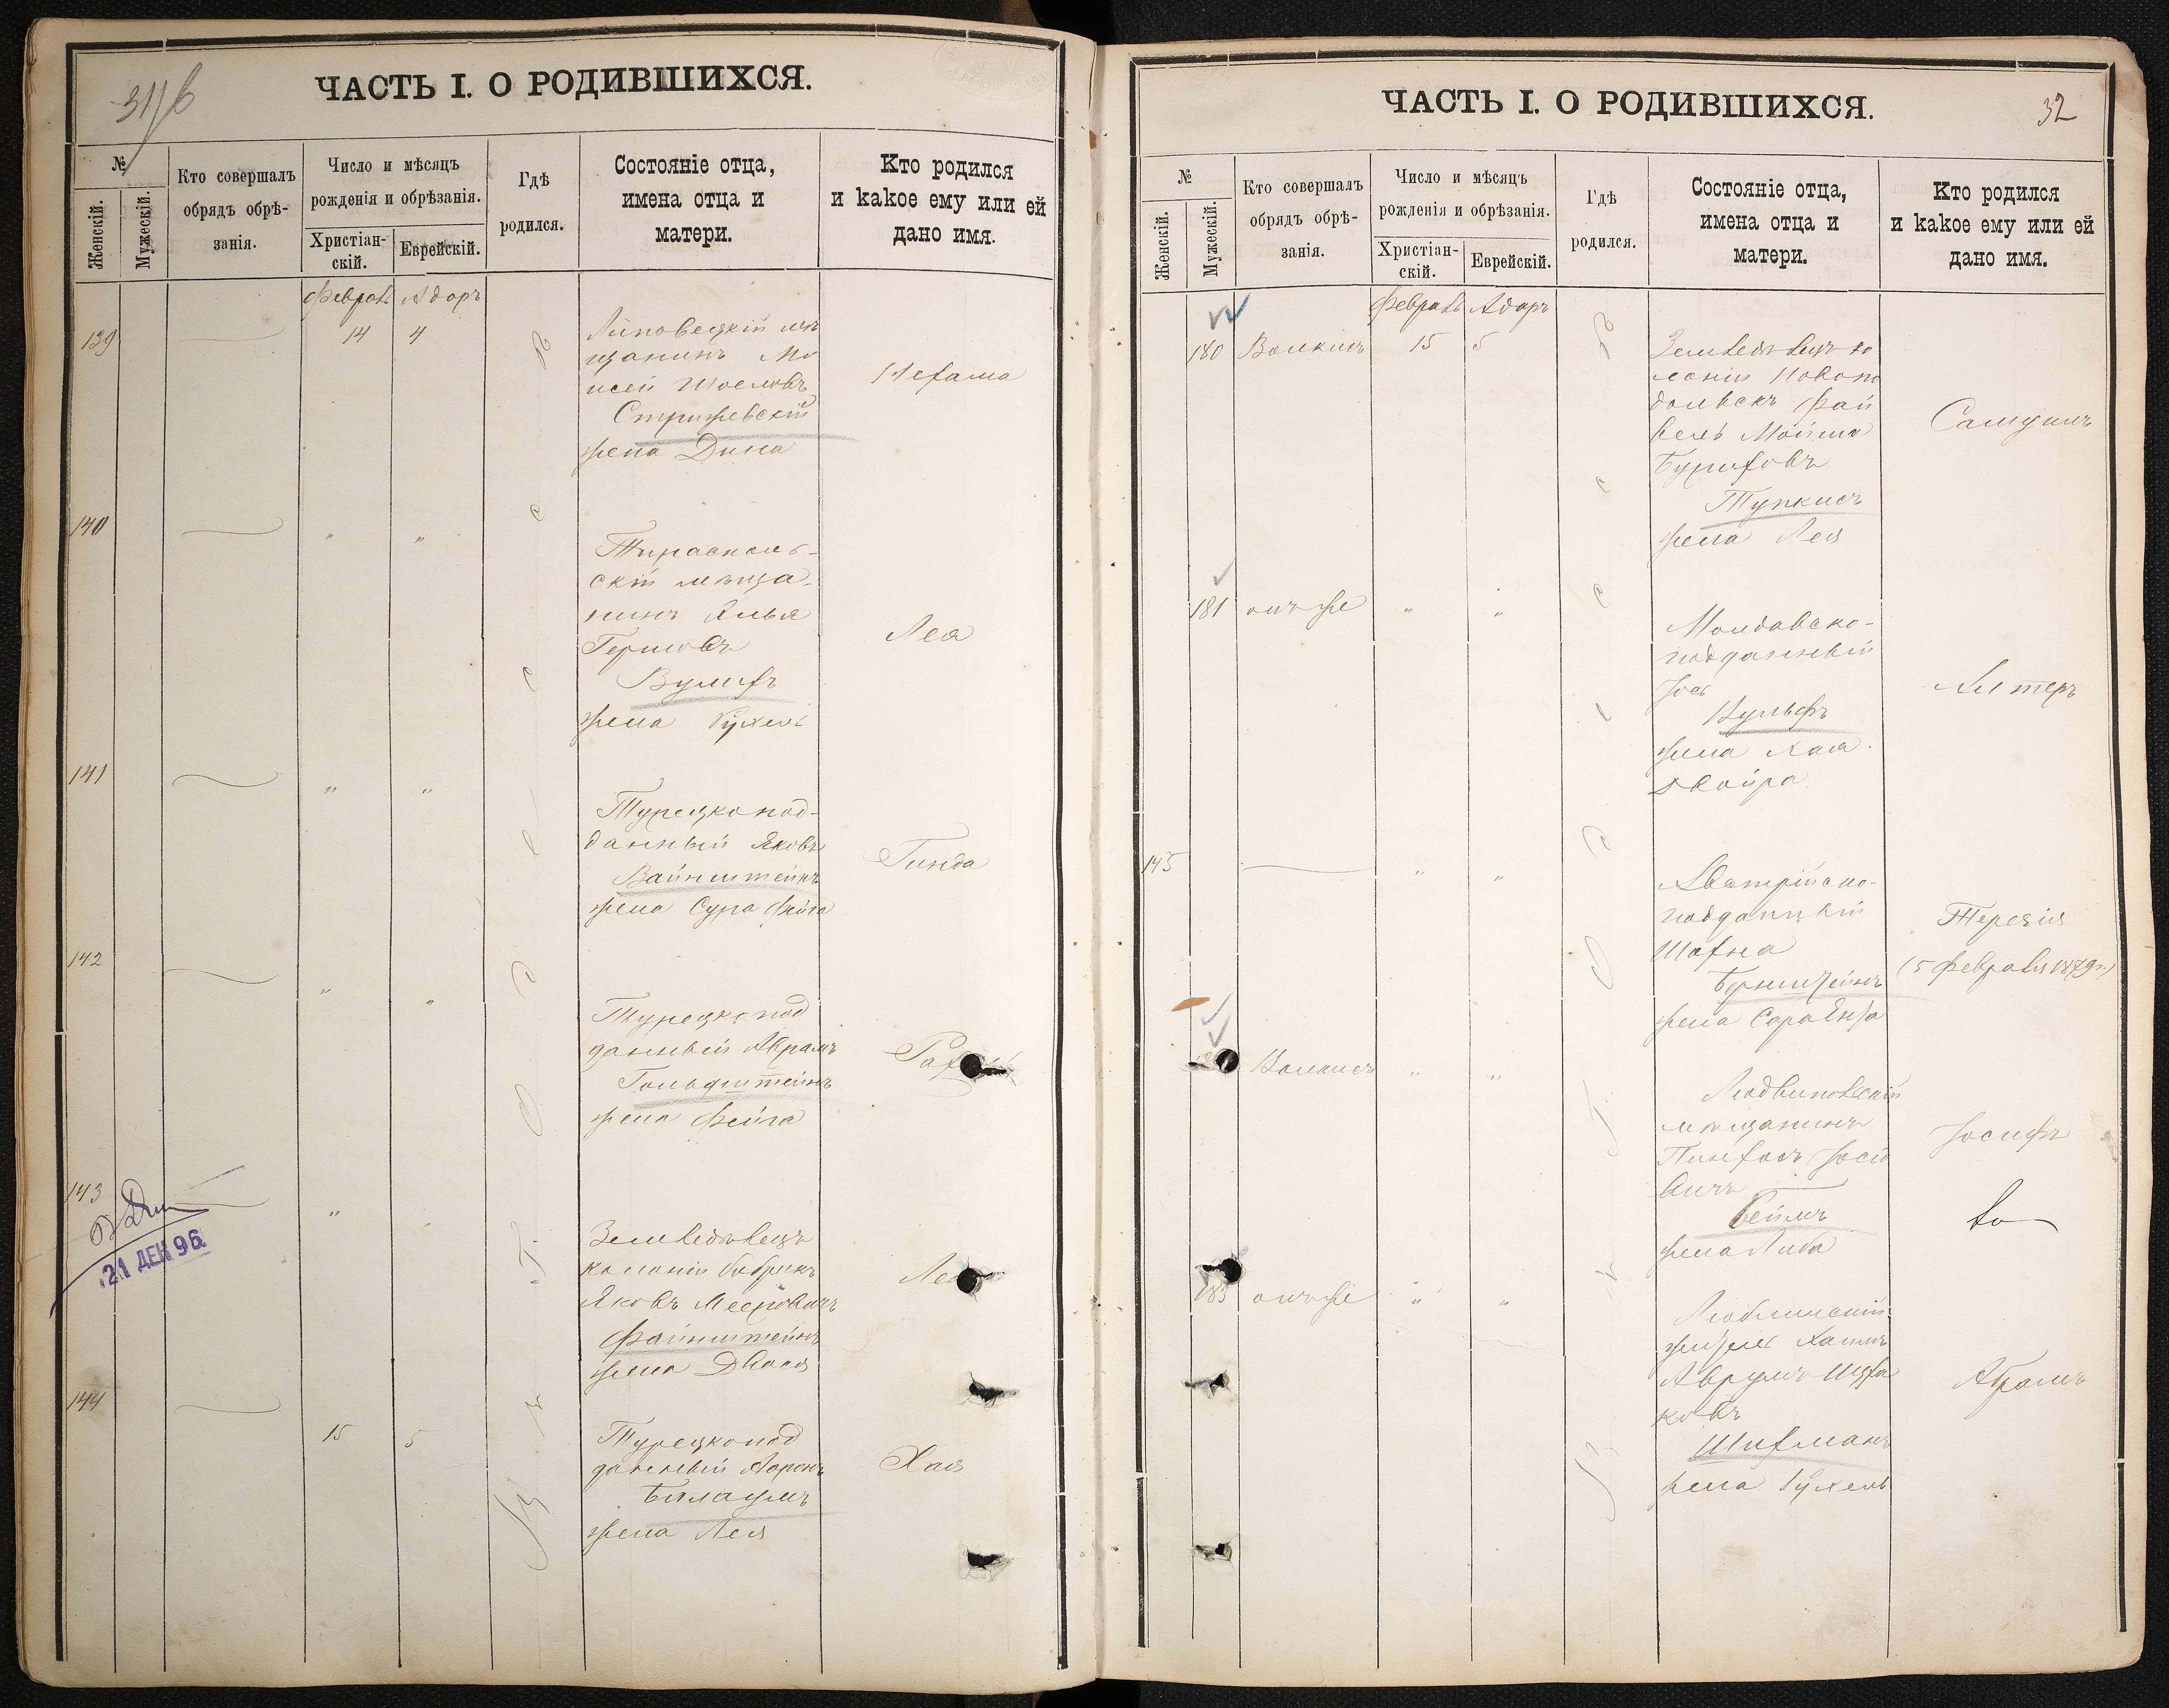 31/б
ЧАСТЬ I. О РОДИВШИХСЯ.
№
Женскій.
Мужескій.
Кто совершалъ
обрядъ обрѣ-
занія.
Число и мѣсяцъ
рожденія и обрѣзанія.
Христіан-
скій.
Еврейскій.
Гдѣ
родился.
Состояніе отца,
имена отца и
матери.
Кто родился
и какое ему или ей
дано имя.
Февраль Адаръ
139 14 4
Липовецкій мѣ
щанинъ Мо
исей
Стрижевскій
жена Дина
Нехама
140 " "
Тирасполь-
скій мѣща-
нинъ Илья
Гершовъ
Вулихъ
жена Рухель
Лея
141 " "
Турецкопод-
данный Яковъ
Вайнштейнъ
жена Сура Фейга
Гинда
142 " "
Турецкопод
данный Абрамъ
Гольдштейнъ
жена Фейга
143 " "
Земледѣлецъ
колоніи
Яковъ Мееровичъ
Файнштейнъ
жена Двося
21 ДЕК 96
144 15 5
Турецкопод
данный Аронъ
жена Лея
Хая
32
ЧАСТЬ I. О РОДИВШИХСЯ.
№
Женскій.
Мужескій.
Кто совершалъ
обрядъ обрѣ-
занія.
Число и мѣсяцъ
рожденія и обрѣзанія.
Христіан-
скій.
Еврейскій.
Гдѣ
родился.
Состояніе отца,
имена отца и
матери.
Кто родился
и какое ему или ей
дано имя.
Февраль Адаръ
180 Волкисъ 15 5
Земледѣлецъ ко
лоніи Новопо
дольскъ Фай
вель Мойше
Тупкисъ
жена Лея
Самуилъ
181 онъ же " "
Молдавско-
подданный
Іось
Вульфъ
жена Хая
Двойра
Алтеръ
145 " "
Австрійско-
подданный
Шахна
Борнштейнъ
жена Сара Ента
Терезія
(5 февраля 1879 г.)
Волкисъ " "
мѣщанинъ
Пинхосъ Іосіо
вичъ
Беймъ
жена Либа
Іосифъ
183 онъ же " "
Люблинскій
житель Хаимъ
Аврумъ
ковъ
Шихманъ
жена Рухель
Абрамъ